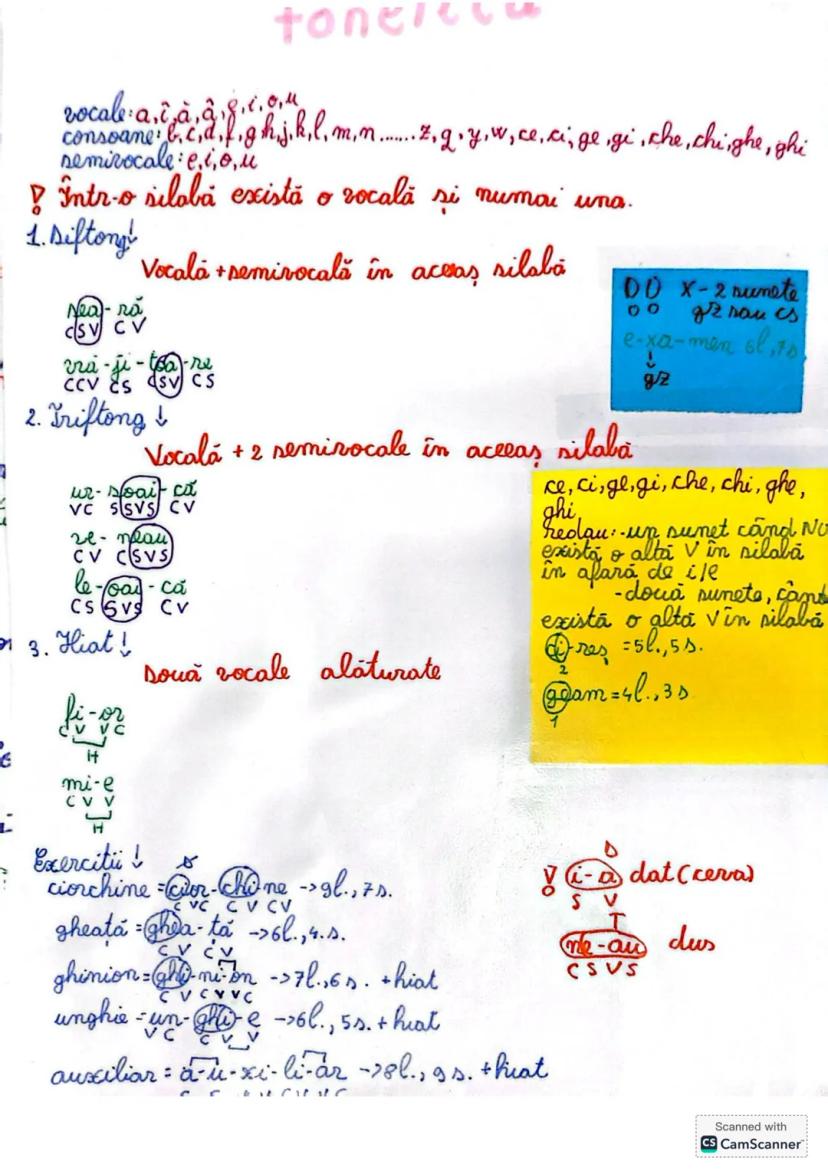 fonetica
vocale: a, î, ă, â, e, i, o, u
consoane: b, c, d, f, g h, j, k, l, m, n ...... z, q, y, w, ce, ci, ge, gi, che, chi, ghe, ghi
semivocale: e, i, o, u
! Într-o silabă există o vocală și numai una.
1. Diftong!
Vocală + semivocală în aceaș silabă
sea - ră
CSV CV
vră - ji - toa - re
CCV CS CSV CS
2. Triftong ↓
Vocală + 2 semivocale în aceeaș silabă
ur - soai - că
VC SSVS CV
ve - neau
CV CSVS
le - oai - că
CS SVS CV
3. Hiat!
Două vocale alăturate
fi - or
CV VC
H
mi - e
CV V
H
Exerciții ↓
ciorchine = cior - chi - ne -> 9l., 7s.
CVC CV CV
gheață = ghea - ță -> 6l., 4.s.
CV CV
ghinion = ghi - ni - on -> 7l., 6s. + hiat
CV CV VC
unghie = un - ghi - e -> 6l., 5s. + hiat
VC CV V
auxiliar = a - u - xi - li - ar -> 8l., 9s. + hiat
X - 2 sunete
gz sau cs
e - xa - men 6l, 7s
gz
ce, ci, ge, gi, che, chi, ghe,
ghi
redau: - un sunet când NU
există o altă V în silabă
în afară de i/e
- două sunete, când
există o altă V în silabă
ci - reș = 5l., 5s.
2
geam = 4l., 3s
1
D
! i - a dat (ceva)
S V
T
ne - au dus
CSVS
Scanned with
CS CamScanner